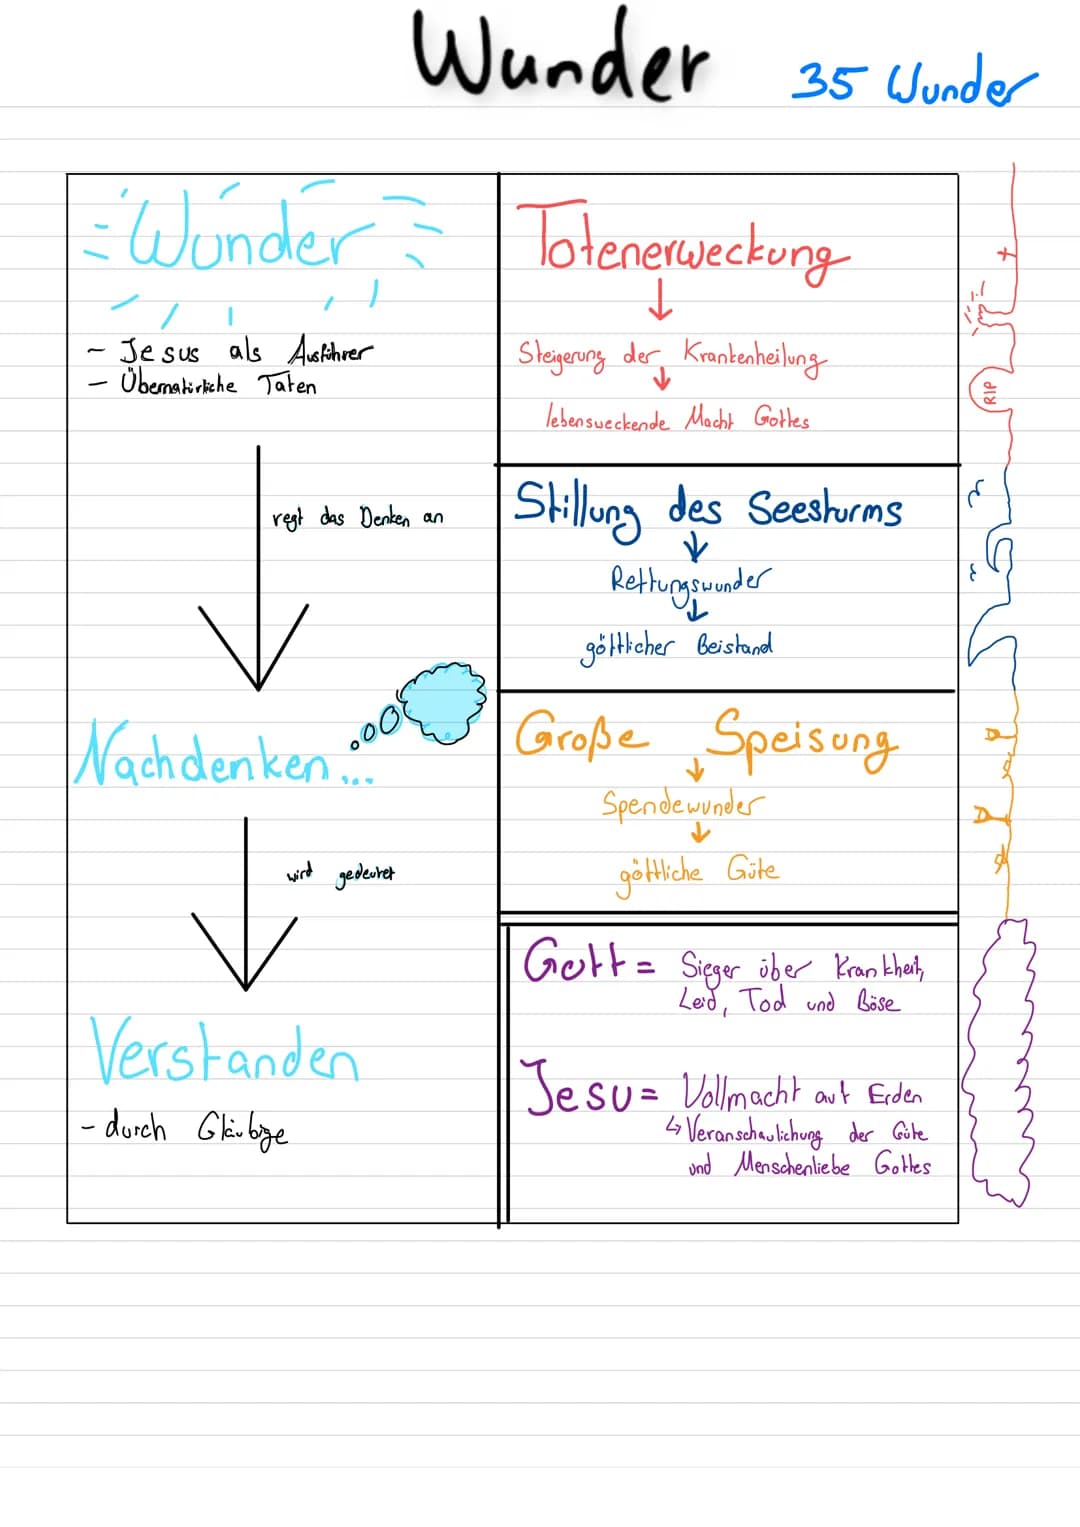 Wunder
35 Wunder
Wunder
- Jesus als Ausführer
- Übernatürliche Taten
regt das Denken an
Nachdenken...
wird gedeutet
Verstanden
- durch Gläubige
Totenerweckung
↓
Steigerung der Krankenheilung
↓
lebensweckende Macht Gottes
Stillung des Seesturms
↓
Rettungswunder
↓
göttlicher Beistand
Große Speisung
↓
Spendewunder
↓
göttliche Güte
Gott = Sieger über Krankheit,
Leid, Tod und Böse
Jesu = Vollmacht auf Erden
↳ Veranschaulichung der Güte
und Menschenliebe Gottes
RIP